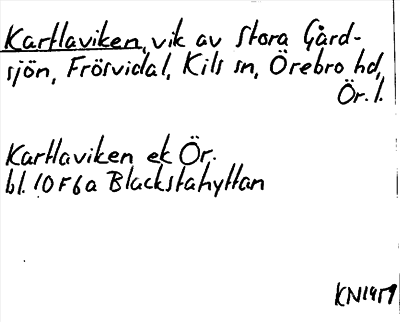 Karttaviken, vik av Stora Gård-
sjön, Frösvidal, Kils sn, Örebro hd,
Ör. l.
Karttaviken ek Ör.
bl. 10F6a Blackstahyttan